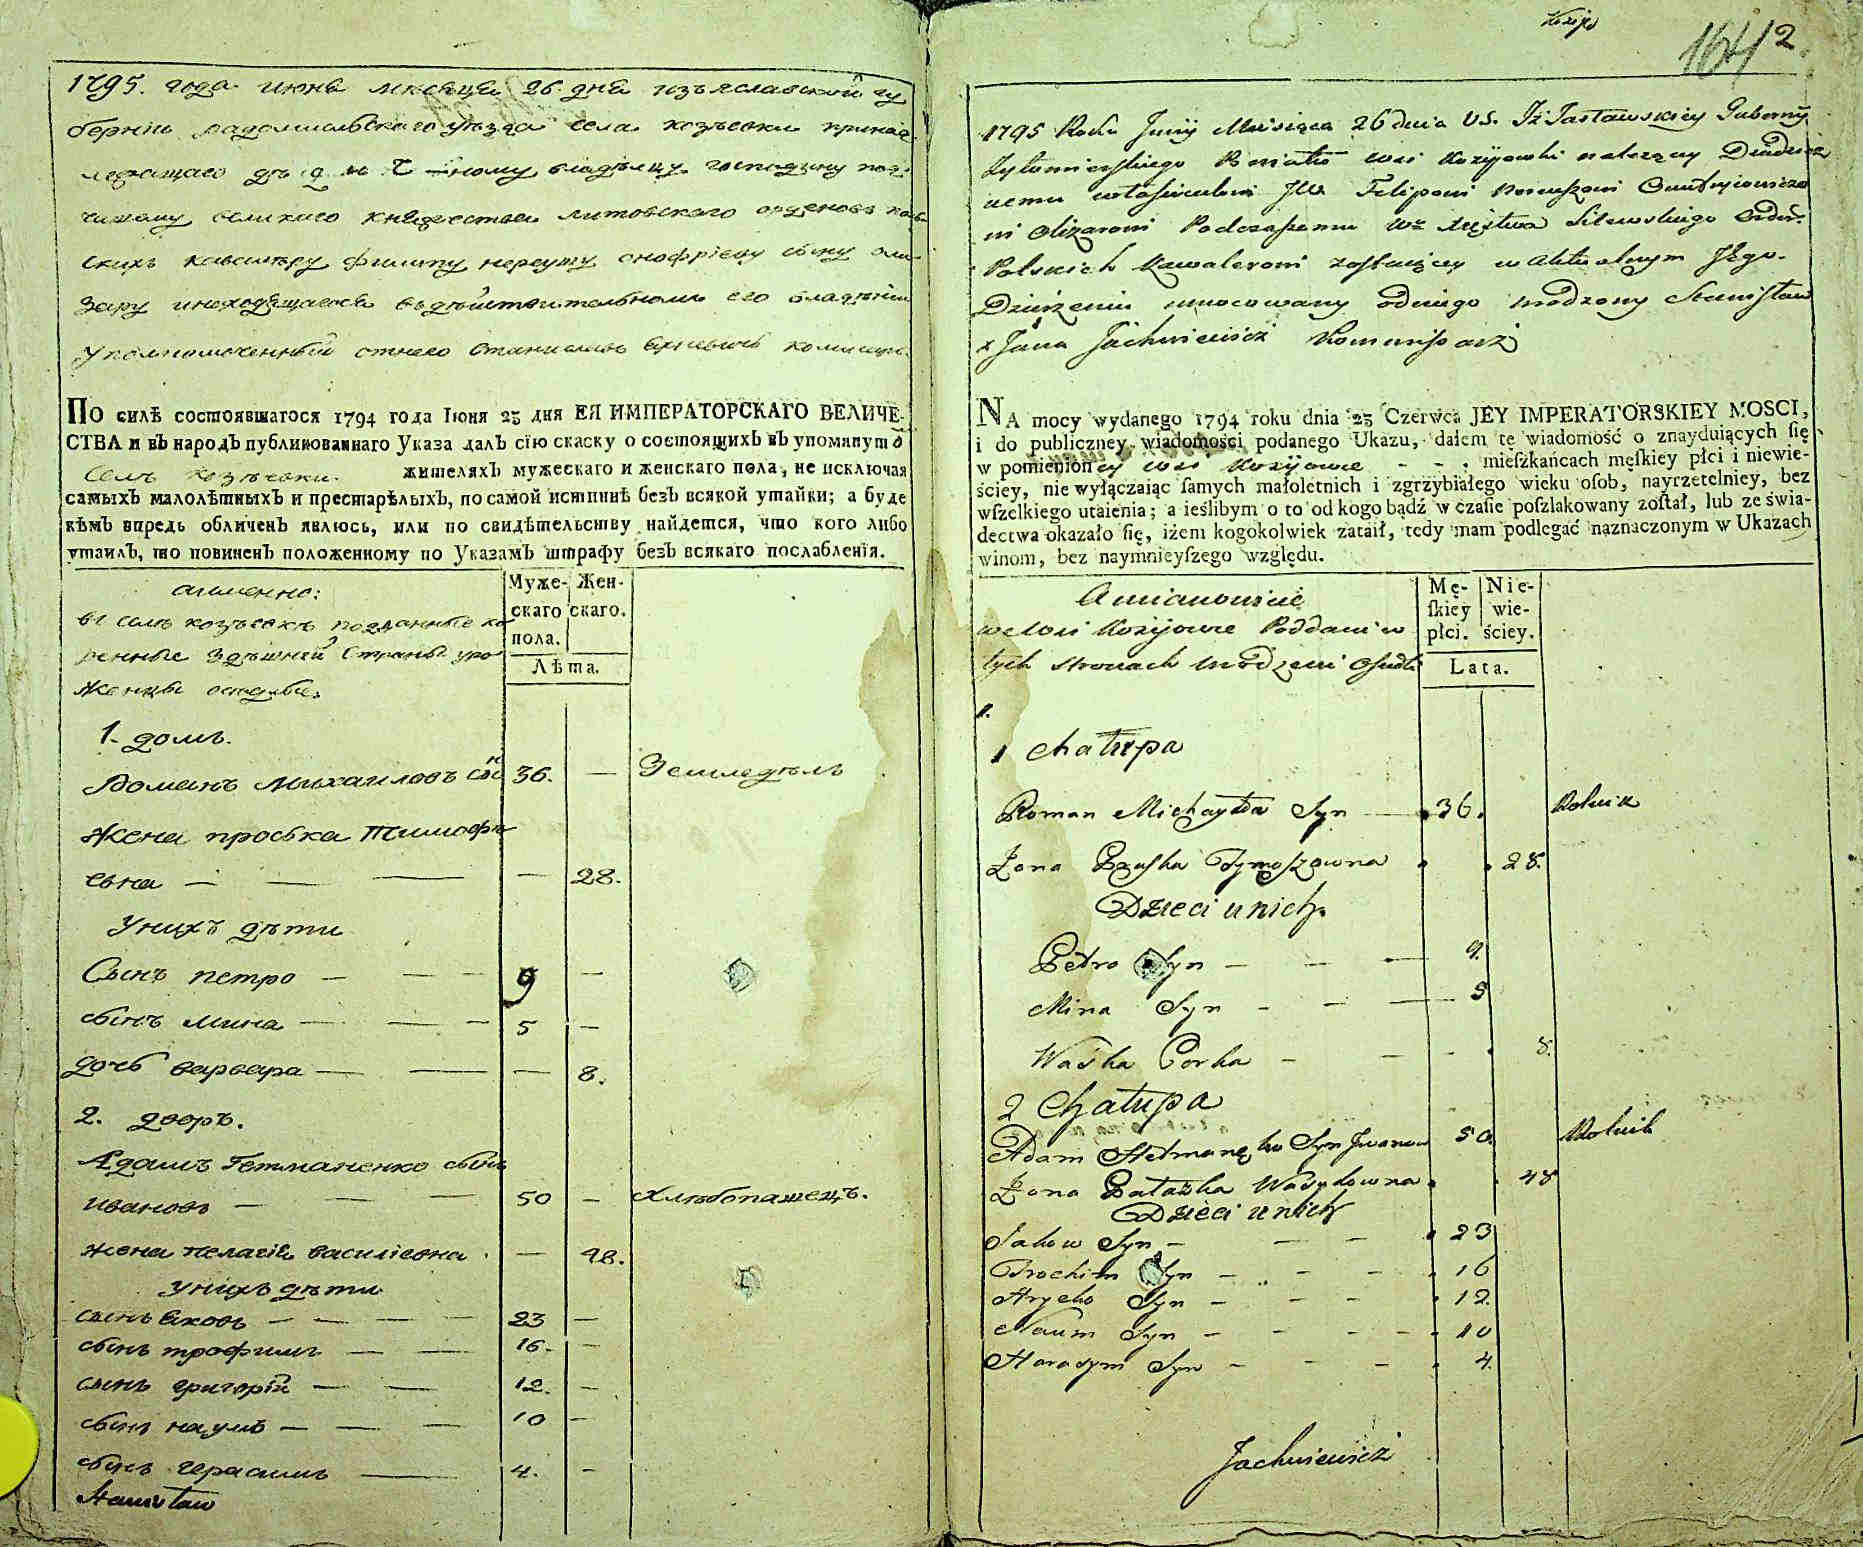 1795. года июня месяца 26. дня изъяславской гу
бернiи радомысльского уѣзда села козѣевки принад-
лежащаго
чашому великого княжества литовского орденовъ поль
скихъ кавалеру филипу нереушу онофрiеву сыну оли-
зару инаходящагося вѣдѣйствительномъ его владѣнiи
уполномоченный отнего Станиславъ комисаръ
По силѣ состоявшагося 1794 года Iюня 23 дня ЕЯ ИМПЕРАТОРСКАГО ВЕЛИЧЕ-
СТВА и въ народъ публикованнаго Указа далъ сiю скаску о состоящихъ въ упомянутѡ
селѣ козѣевки. жителяхъ мужескаго и женскаго пола, не исключая
самыхъ малолѣтныхъ и престарѣлыхъ, по самой истиннѣ безъ всякой утайки; а буде
кѣмъ впредь обличенъ явлюсь, или по свидѣтельству найдется, что кого либо
утаилъ, то повиненъ положенному по Указамъ штрафу безъ всякаго послабленiя.
аименно:
вселѣ козѣевкѣ подданные ко
ренные здѣшней страны уро
женцы
Муже-
скаго
пола.
Жен-
скаго.
Лѣта.
1. домъ.
Романъ Михаиловъ сынъ 36. — Земледѣлъ
Жена проська Тимофѣ
евна — — — — 28.
Унихъ дѣти
Сынъ петро — — — 9 —
сынъ мина — — — 5 —
дочь варвара — — — 8.
2. дворъ.
Адамъ Гетманенко сынъ
ивановъ — — — 50 — Хлѣбопашецъ.
жена пелагiя василiевна — 48.
унихъ дѣти
сынъ яковъ — — — — 23 —
сынъ трофимъ — — 16. —
сынъ григорiй — — 12. —
сынъ наумъ — — — 10 —
сынъ герасимъ — 4. —
Stanisław
1642
1795 Roku Juny Miesiąca 26 dnia V.S. Iz Jasławskiey Guberny
Żytomierskiego Powiatu wsi Kozijowki
JW. Felipowi Nereuszowi Onufryiowiczo
wi Olizarowi Podczaszemu Wº Xięstwa Litewskiego Orderº
Polskich Kawalerowi zostaiącey w aktualnym Jego
Dzierżeniu umocowany odniego urodzony Stanisław
x Jana Jachniewicz Kommisarz
NA mocy wydanego 1794 roku dnia 23 Czerwca JEY IMPERATORSKIEY MOSCI,
i do publiczney wiadomości podanego Ukazu, dałem tę wiadomość o znayduiących ſię
w pomienioney wsi Kozijowce - - . mieſzkańcach męſkiey płci i niewie-
ściey, nie wyłączaiąc ſamych małoletnich i zgrzybiałego wieku oſob, nayrzetelniey, bez
wſzelkiego utaienia; a ieślibym o to od kogo bądź w czaſie poſzlakowany zoſtał, lub ze świa-
dectwa okazało ſię, iżem kogokolwiek zataił, tedy mam podlegać naznaczonym w Ukazach
winom, bez naymnieyſzego względu.
A mianowicie
we wsi Kozijowce Poddani w
tych stronach urodzeni osiedli
Mę-
ſkiey
płci.
Nie-
wie-
ściey.
Lata.
1.
1 Chałupa
Roman Michayła Syn — 36. Rolnik
Żona Praska Tymoszowna . . 28.
Dzieci u nich.
Petro Syn — — — 9.
Mina Syn — — — 5
Waśka Corka — — — . 8.
2 Chałupa
Adam Hetmanęko Syn Jwanow 50. Rolnik
Żona Pałażka Wasylowna . . 48
Dzieci u nich
Jakow Syn — — — . 23
Trochim Syn — — — . 16
Hryćko Syn — — — . 12.
Naum Syn — — — . 10
Harasym Syn — — — . 4.
Jachniewicz